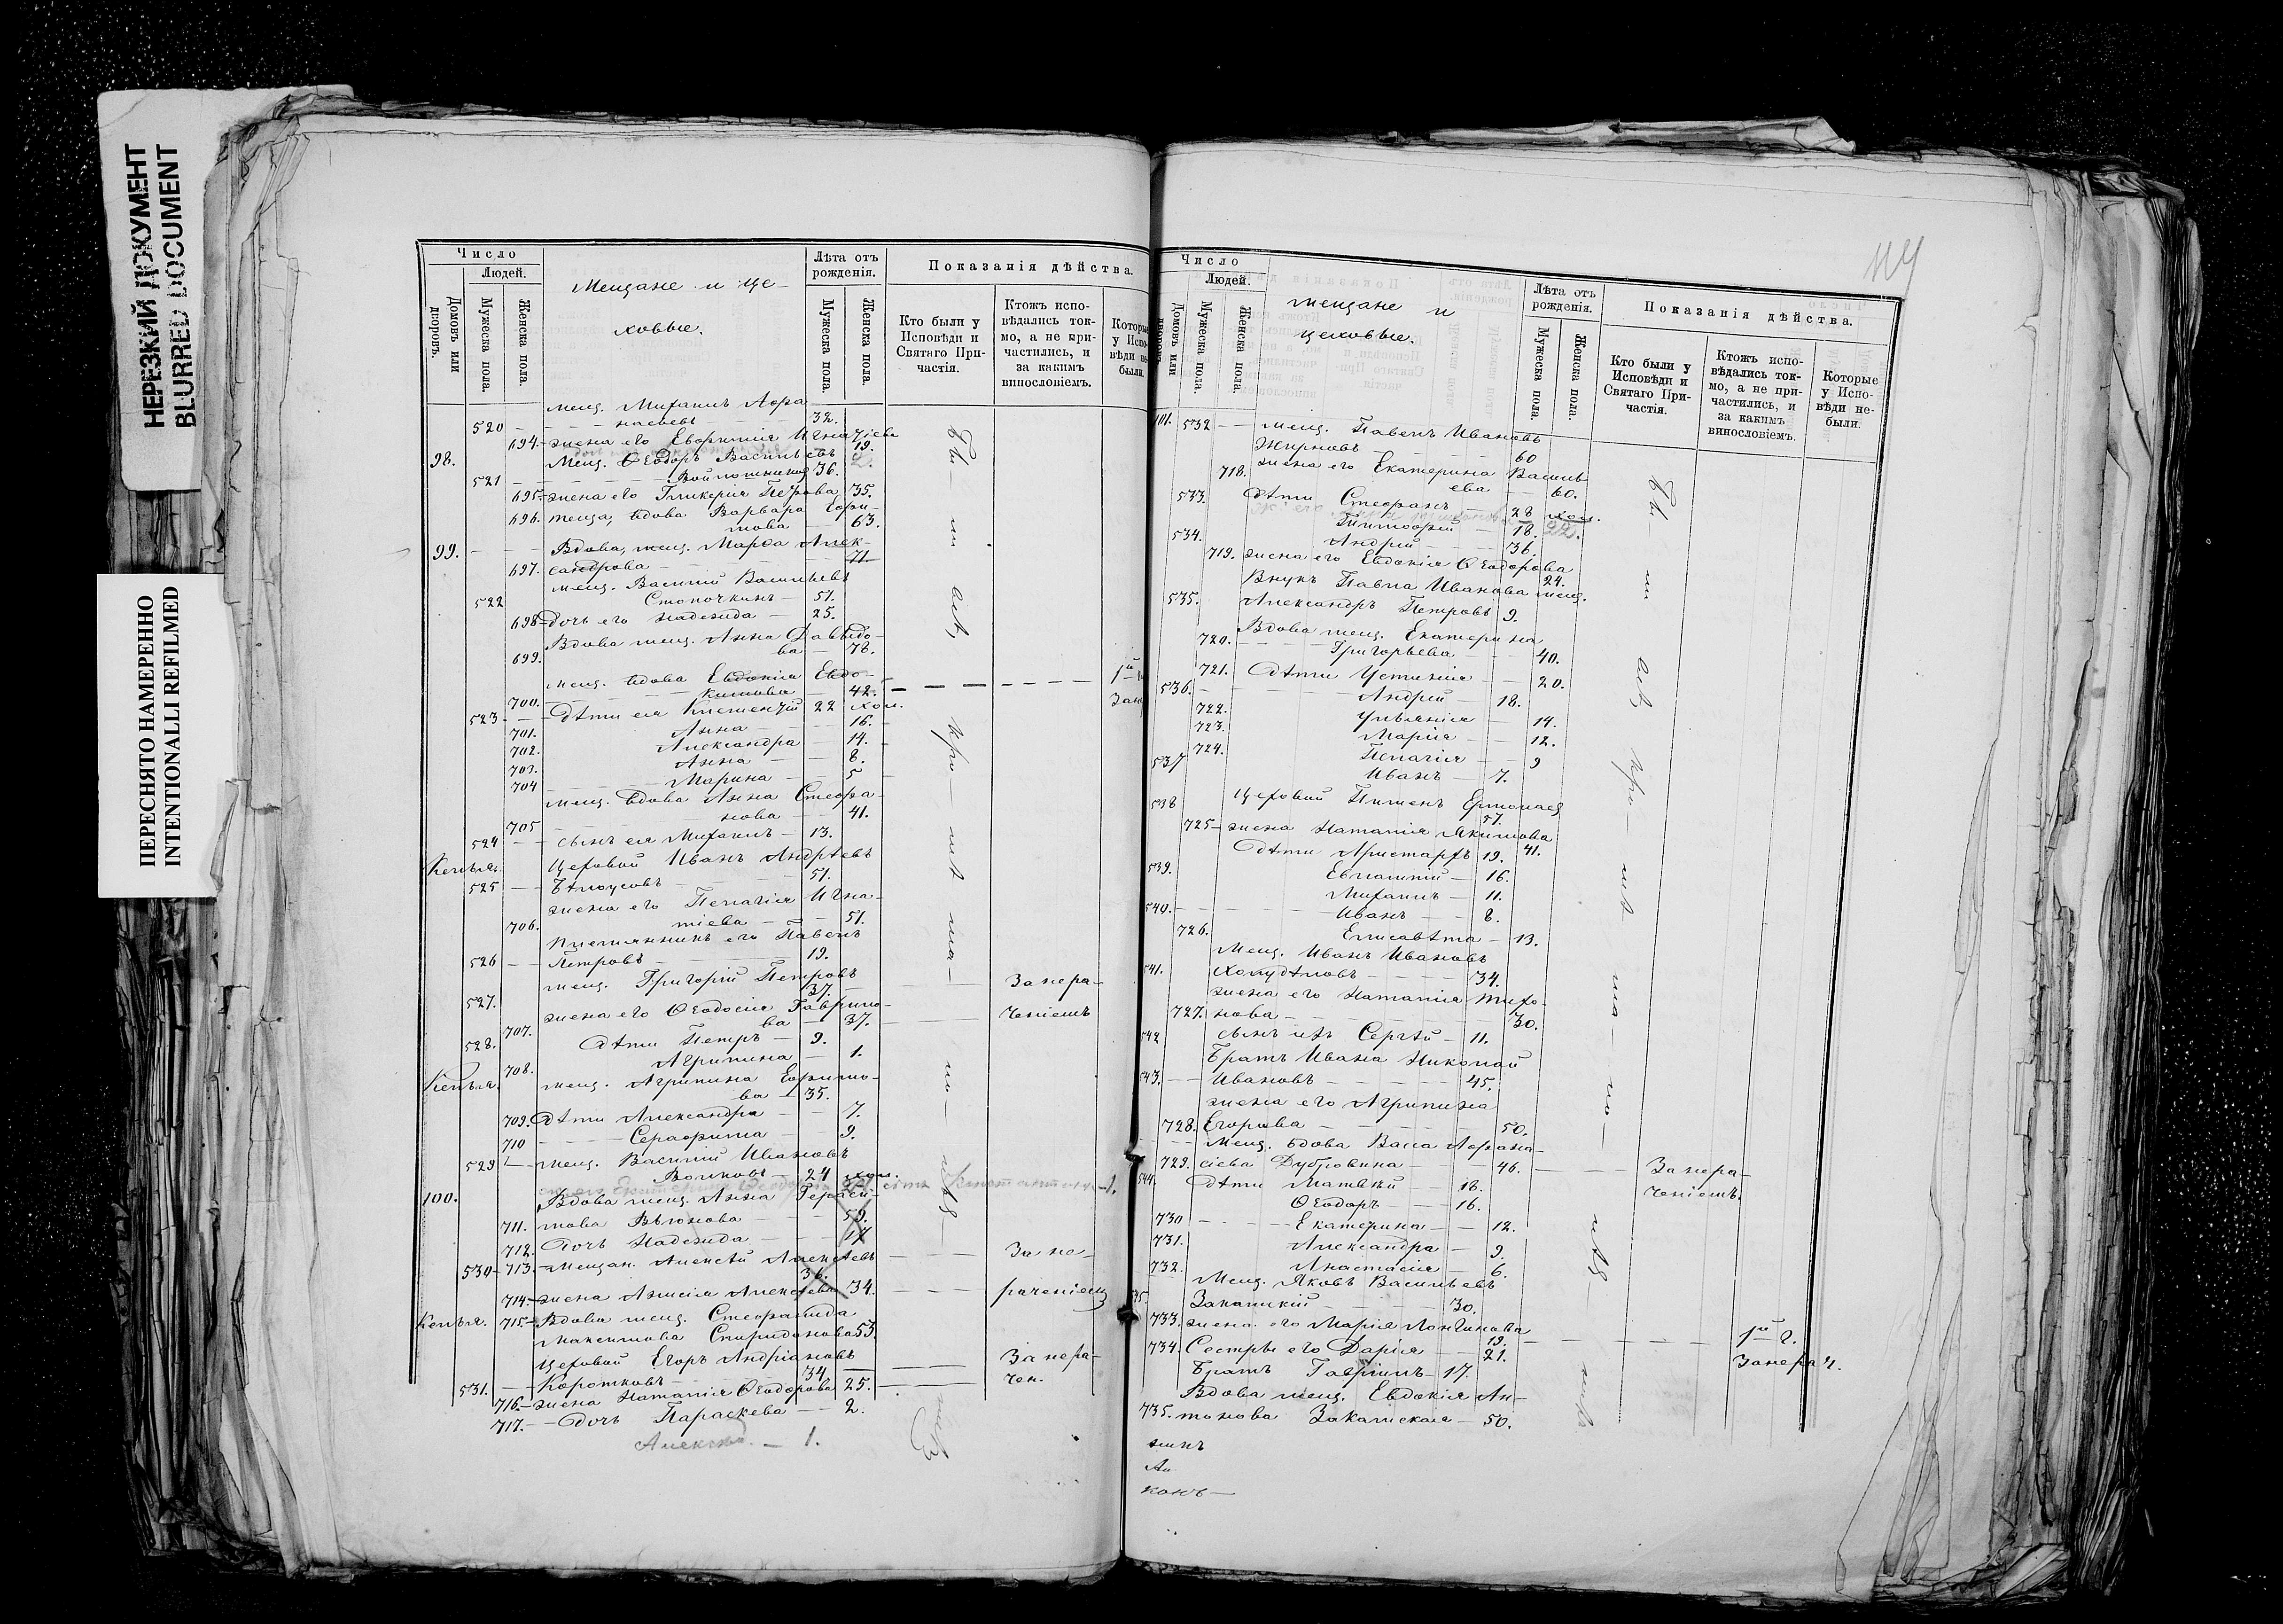 НЕРЕЗКИЙ ДОКУМЕНТ
BLURRED DOCUMENT
ПЕРЕСНЯТО НАМЕРЕННО
INTENTIONALLI REFILMED
Число
Людей.
Домовъ или дворовъ.
Мужеска пола.
Женска пола.
Мещане и це-
ховые.
Лѣта отъ рожденія.
Мужеска пола.
Женска пола.
Показанія дѣйства.
Кто были у Исповѣди и Святаго При-частія.
Ктожъ испо-вѣдались ток-мо, а не при-частились, и за какимъ винословіемъ.
Которые у Испо-вѣди не были.
мещ. Михаилъ Афра
520 — насьевъ — 32.
694. жена его Евфимія Игнатіева 19.
98. Мещ. Ѳеодоръ Васильевъ
521 — 36.
695. жена его Гликерія Петрова 35.
696. теща, вдова Варвара Ефи-
мова — 63.
99. — Вдова, мещ. Марфа Алек-
697. сандрова — 71
мещ. Василій Васильевъ
522 Стопочкинъ — 51.
698 дочь его Надежда — 25.
Вдова мещ. Анна Давыдо-
699. ва — 78.
мещ. вдова Евдокія Евдо-
700. кимова — 42.
523 — дѣти ея Климентій 22 хол.
701. Анна — 16.
702. Александра — 14.
703. Анна — 8.
704 — Марина — 5
мещ. вдова Анна Стефа-
705 нова — 41.
524 — сынъ ея Михаилъ — 13.
Келья. Цеховой Иванъ Андреевъ
525 — Бѣлоусовъ — 51.
жена его Пелагія Игна-
706. тіева — 51.
племянникъ его Павелъ
526 — Петровъ — 19.
мещ. Григорій Петровъ
527. 37. — За нера-
жена его Ѳеодосія Гаврило-
707. ва — 37. — ченіемъ
528. дѣти Петръ — 9.
708. Агрипина — 1.
Келья. мещ. Агрипина Ефимо-
ва — 35.
709. дѣти Александра — 7.
710 — Серафима — 9.
529 — мещ. Василій Ивановъ
Волковъ — 24 хол.
100. Вдова мещ. Анна Гераси-
711. мова Вьюнова — 59.
712. дочь Надежда — 17
530 — 713. Мещан. Алексѣй Алексѣевъ — За не-
36.
714. жена Алексѣева 34. — раченіемъ
Келья. 715. Вдова мещ. Стефанида
Максимова Спиридонова 53.
Цеховой Егоръ Андріановъ — За нера-
531. — Коротковъ — 34 — чен.
716. жена Наталія Ѳеодорова 25.
717. — дочь Параскева — 2.
Александ. — 1.
Бы — ли всѣ, при — чѣ
114
Число
Людей.
Домовъ или дворовъ.
Мужеска пола.
Женска пола.
мещане и
цеховые.
Лѣта отъ рожденія.
Мужеска пола.
Женска пола.
Показанія дѣйства.
Кто были у Исповѣди и Святаго При-частія.
Ктожъ испо-вѣдались ток-мо, а не при-частились, и за какимъ винословіемъ.
Которые у Испо-вѣди не-были.
101. 532 — мещ. Павелъ Ивановъ
Жирновъ — 60
718. жена его Екатерина Василь-
ева — 60.
533. дѣти Стефанъ — 28 хол.
Тимофей — 18. 22.
534. Андрей — 36.
719. жена его Евдокія Ѳеодорова
24.
Внукъ Павла Иванова мещ.
535. Александръ Петровъ 9.
Вдова мещ. Екатерина
720. Григорьева — 40.
721. дѣти Устинія — 20.
536. — Андрей — 18.
722. Ульянія — 14.
723. Марія — 12.
724. Пелагія — 9
537 Иванъ — 7.
538 Цеховой Пименъ Ермолаев
57.
725 — жена Наталія Якимова
41.
дѣти Аристархъ 19.
539. Евлампій — 16.
Михаилъ — 11.
540. — Иванъ — 8.
726. Елисавета — 13.
Мещ. Иванъ Ивановъ
541. Холудѣловъ — 34.
жена его Наталія Тихо-
727. нова — 30.
542 сынъ ихъ Сергѣй — 11.
Братъ Ивана Николай
543. — Ивановъ — 45.
жена его Агрипина
728. Егорова — 50.
— Мещ. вдова Васса Афана-
729. сіева Дубровина — 46. — За нера-
544 дѣти Матвей — 18. ченіемъ.
Ѳеодоръ — 16.
730 — Екатерина — 12.
731. Александра — 9.
732. Анастасія — 6.
Мещ. Яковъ Васильевъ
Закамскій — 30.
733. жена его Марія Лонгинова
19.
734. Сестры его Дарія — 21.
Занерач.
Братъ Гавріилъ — 17.
Вдова мещ. Евдокія Ан-
735. тонова Закамская — 50.